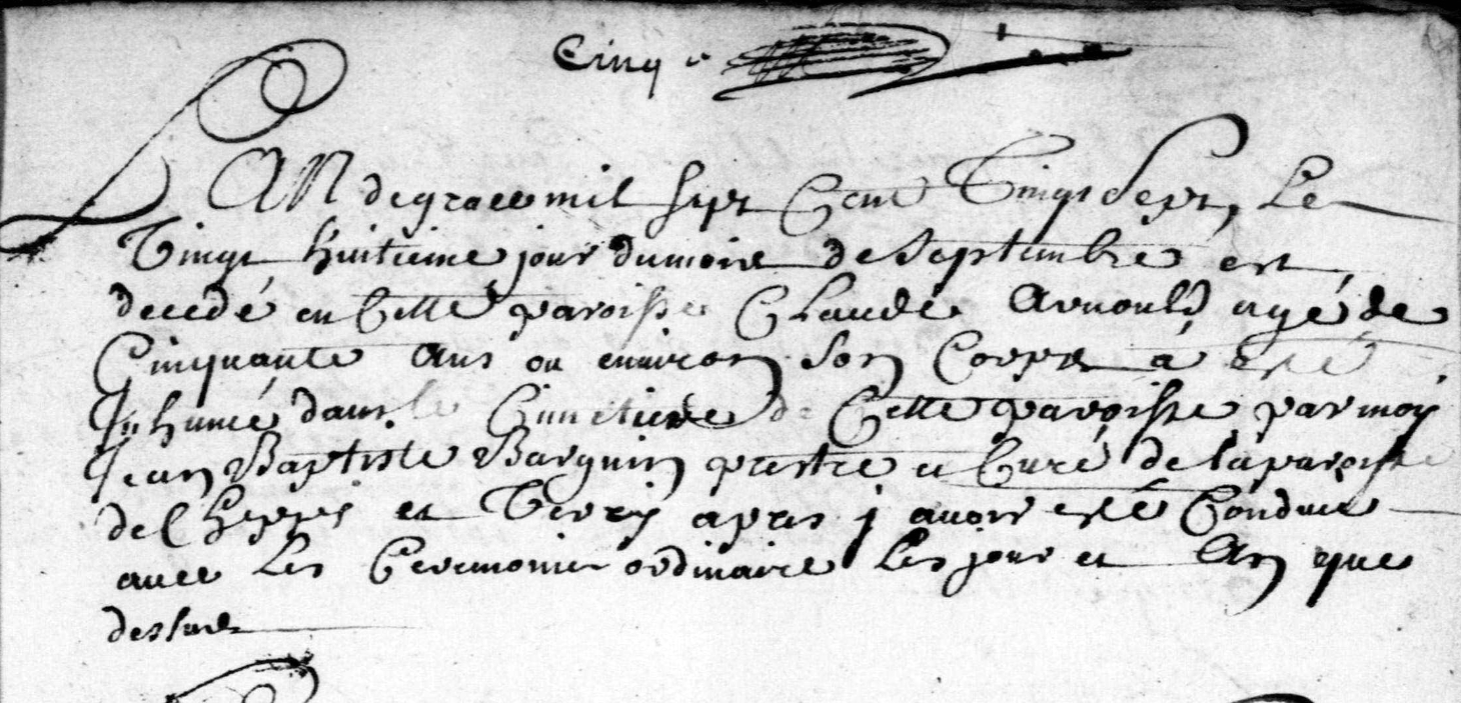 Cinq
L'AN de grace mil sept Cent Vingt Sept, Le
Vingt huitieme jour du mois de Septembre est
decedé en Cette paroisse Claude Arnould agé de
Cinquante Ans ou environ Son Corps a esté
Inhumé dans le Cimetiere de Cette paroisse par moy
Jean Baptiste Barquin prestre et Curé de la paroisse
de et apres j avoir esté Conduit
avec Les Ceremonies ordinaire Les jour et An que
dessus